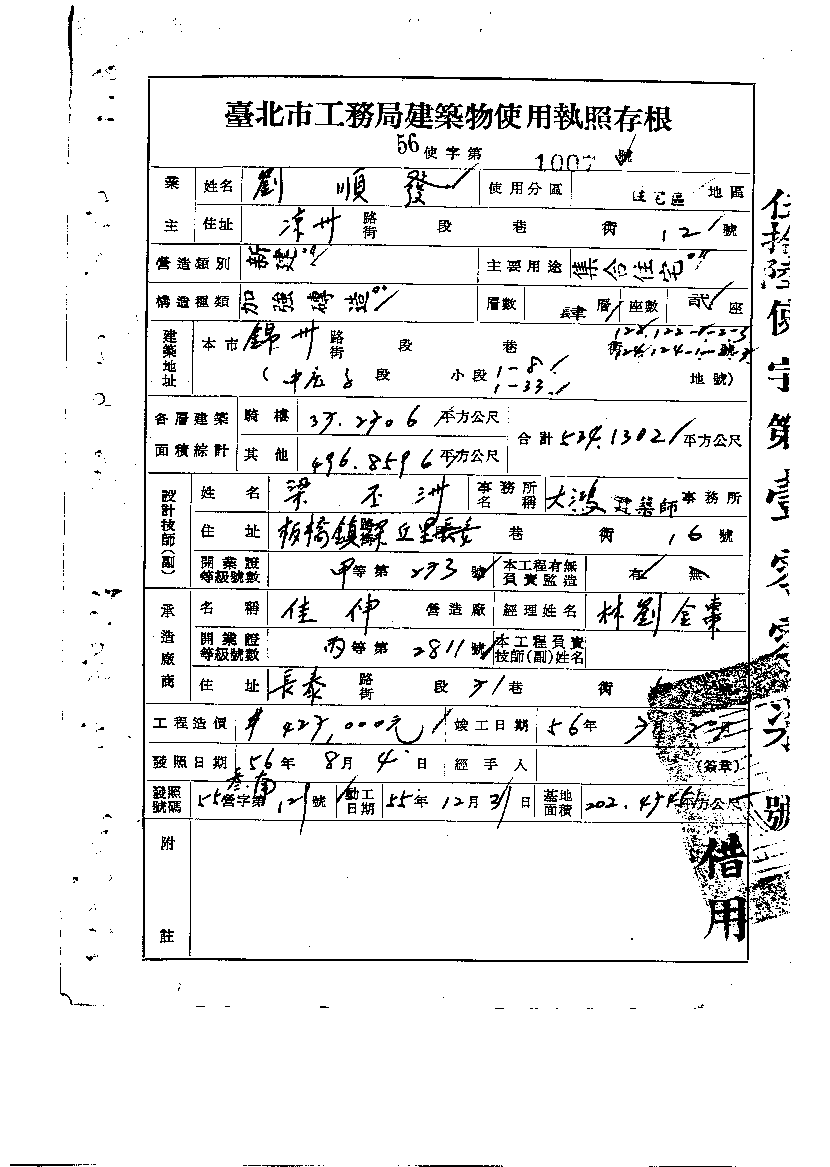 臺北市工務局建築物使用執照存根
56使字第1007號
業主 姓名 劉順發 使用分區 住宅區 地區
住址 涼州 路街 段 巷 衖 121號
營造類別 新建 主要用途 集合住宅
構造種類 加強磚造 層數 肆層 座數 貳座
建築地址 本市 錦州 路街 段 巷 衖 號
( 段 小段 1-8 1-33 地號)
各層建築面積綜計 騎樓 平方公尺 合計 524.1302 平方公尺
其他 496.8596 平方公尺
設計技師(副) 姓名 梁丕洲 事務所名稱 大鴻建築師事務所
住址 板橋鎮 里長安 巷 衖 16號
開業證等級號數 甲等第293號 本工程有無負責監造 有 無
承造廠商 名稱 佳伸 營造廠 經理姓名 林劉金棗
開業證等級號數 丙等第2811號 本工程負責技師(副)姓名
住址 長泰 路街 段 巷 衖
工程造價 竣工日期 56年
發照日期 56年8月4日 經手人 (簽章)
發照號碼 55營字第121號 動工日期 55年12月31日 基地面積 平方公尺
附註
伍拾陸使字第壹零零柒號
借用